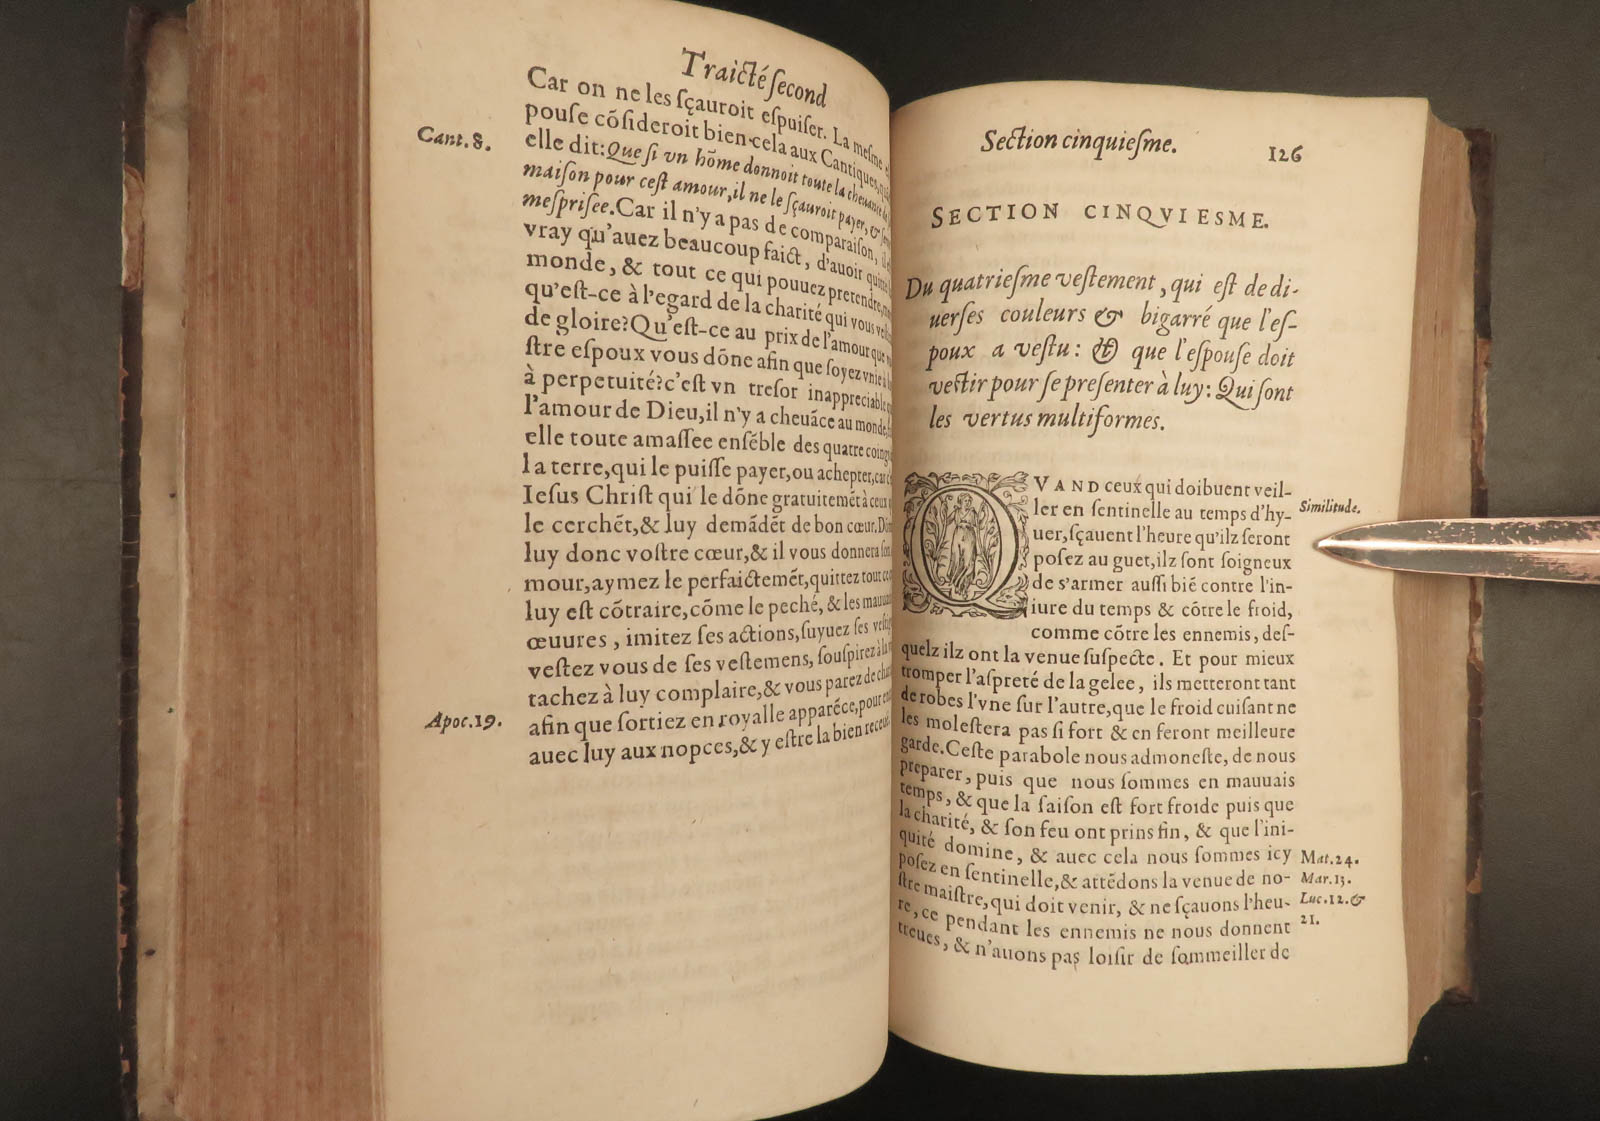 Traicté ſecond
Car on ne les ſçauroit eſpuiſer. La meſme
pouſe cõſideroit bien cela aux Cantiques,
Cant.8.
elle dit: Que ſi vn hõme donnoit toute la cheuance
maiſon pour ceſt amour, il ne le ſçauroit payer, &
meſpriſee. Car il n'y a pas de comparaiſon,
vray qu'auez beaucoup faict, d'auoir
monde, & tout ce qui pouuez pretendre,
qu'eſt-ce à l'egard de la charité qui vous
de gloire? Qu'eſt-ce au prix de l'amour que
ſtre eſpoux vous dõne afin que ſoyez vnie à
à perpetuité? c'eſt vn treſor inappreciable
l'amour de Dieu, il n'y a cheuãce au monde,
elle toute amaſſee enſẽble des quatre coings
la terre, qui le puiſſe payer, ou achepter, car
Ieſus Chriſt qui le dõne gratuitemẽt à ceux
le cerchẽt, & luy demãdẽt de bon cœur.
luy donc voſtre cœur, & il vous donnera
mour, aymez le perfaictemẽt, quittez tout
luy eſt cõtraire, cõme le peché, & les
œuures, imitez ſes actions, ſuyuez ſes
veſtez vous de ſes veſtemens, ſouſpirez à
tachez à luy complaire, & vous parez de
Apoc.19.
afin que ſortiez en royalle apparẽce, pour
auec luy aux nopces, & y eſtre la bien
Section cinquieſme.
126
SECTION CINQVIESME.
Du quatrieſme veſtement, qui eſt de di-
uerſes couleurs & bigarré que l'eſ-
poux a veſtu: & que l'eſpouſe doit
veſtir pour ſe preſenter à luy: Qui ſont
les vertus multiformes.
QVAND ceux qui doibuent veil-
ler en ſentinelle au temps d'hy-
Similitude.
uer, ſçauent l'heure qu'ilz ſeront
poſez au guet, ilz ſont ſoigneux
de s'armer auſſi biẽ contre l'in-
iure du temps & cõtre le froid,
comme cõtre les ennemis, deſ-
quelz ilz ont la venue ſuſpecte. Et pour mieux
tromper l'aſpreté de la gelee, ils metteront tant
de robes l'vne ſur l'autre, que le froid cuiſant ne
les moleſtera pas ſi fort & en feront meilleure
garde. Ceſte parabole nous admoneſte, de nous
preparer, puis que nous ſommes en mauuais
temps, & que la ſaiſon eſt fort froide puis que
la charité, & ſon feu ont prins fin, & que l'ini-
quité domine, & auec cela nous ſommes icy
Mat.24.
poſez en ſentinelle, & attẽdons la venue de no-
Mar.13.
ſtre maiſtre, qui doit venir, & ne ſçauons l'heu-
Luc.12.&
re, ce pendant les ennemis ne nous donnent
21.
treues, & n'auons pas loiſir de ſommeiller de